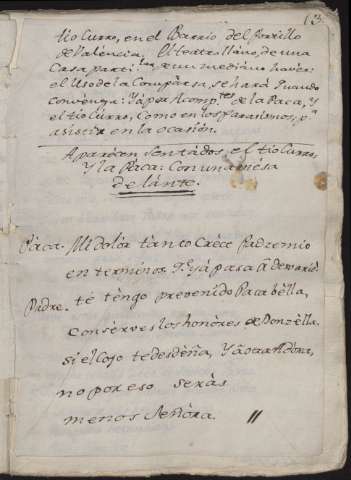 13.
tio Curro, en el Barrio del Jorrillo
de Valencia. El teatro llano, de una
Casa parti.lar de un mediano haver:
el Uso de la Compàrsa, se harà quando
convènga: Yà p.r Acomp.to de la Paca, Y
el tio Cùrro, como en los Pararismos, p.a
asistir en la ocasión.
Aparècen sentàdos, el tio Curro,
Y la Pàca: Con una mèsa
delànte.
Pàca. Mi dolòr tànto Crèce Padre mio
en terminos q.e yà pasa à
Padre. te tèngo prevenido Paca bèlla,
consèrves los honòres de Donzèlla.
si el Cojo te desdèña, Y à otra Adòra,
no por eso seràs
menos Señòra. //